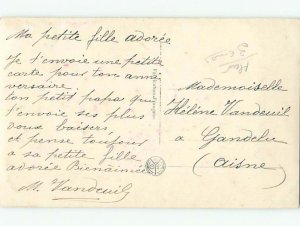 Ma petite fille adorée
Je t'envoie une petite
carte pour ton anni
versaire
ton petit papa qui
t'envoie ses plus
doux baisers
et pense toujours
a sa petite fille
adorée Bienaimée
M. Vandeuil
Mademoiselle
Hélène Vandeuil
a Gandelu
(Aisne)